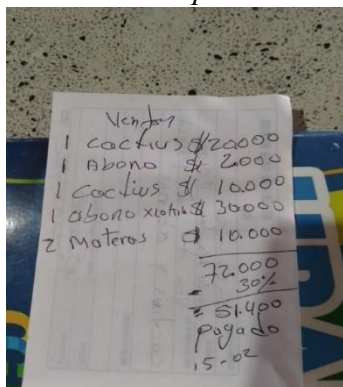 Ventas
1 cactius $20000
1 Abono $ 2.000
1 Coctius $ 10.000
1 abono $ 30000
2 Materos $ 10.000
72.000
- 30%
= 51.400
Pagado
15-02